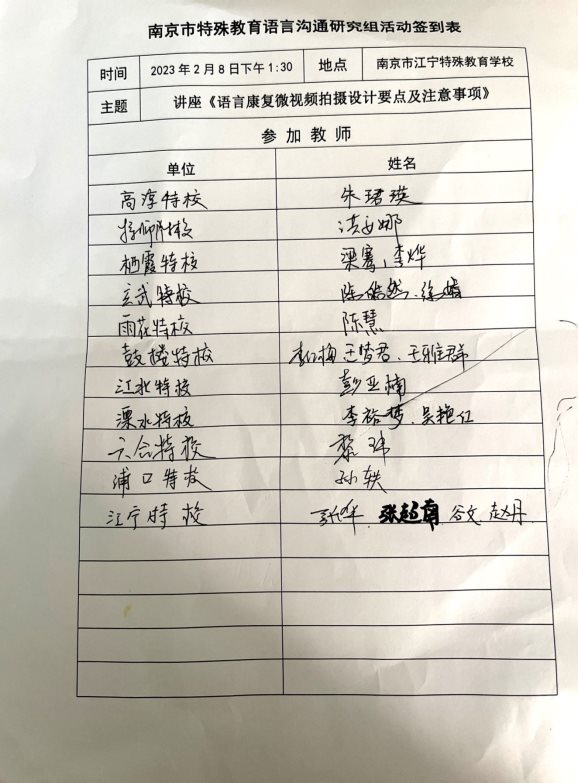 南京市特殊教育语言沟通研究组活动签到表
时间 2023年2月8日下午1:30 地点 南京市江宁特殊教育学校
主题 讲座《语言康复微视频拍摄设计要点及注意事项》
参加教师
单位 姓名
高淳特校 朱珺瑛
特校 洪
栖霞特校 梁骞、李烨
玄武特校 陈皓然、徐婧
雨花特校 陈慧
鼓楼特校 李红梅 王雅群
江北特校 彭亚楠
溧水特校 李裕梦、吴艳红
六合特校 黎玮
浦口特校 孙轶
江宁特校 张越南 谷文 赵丹